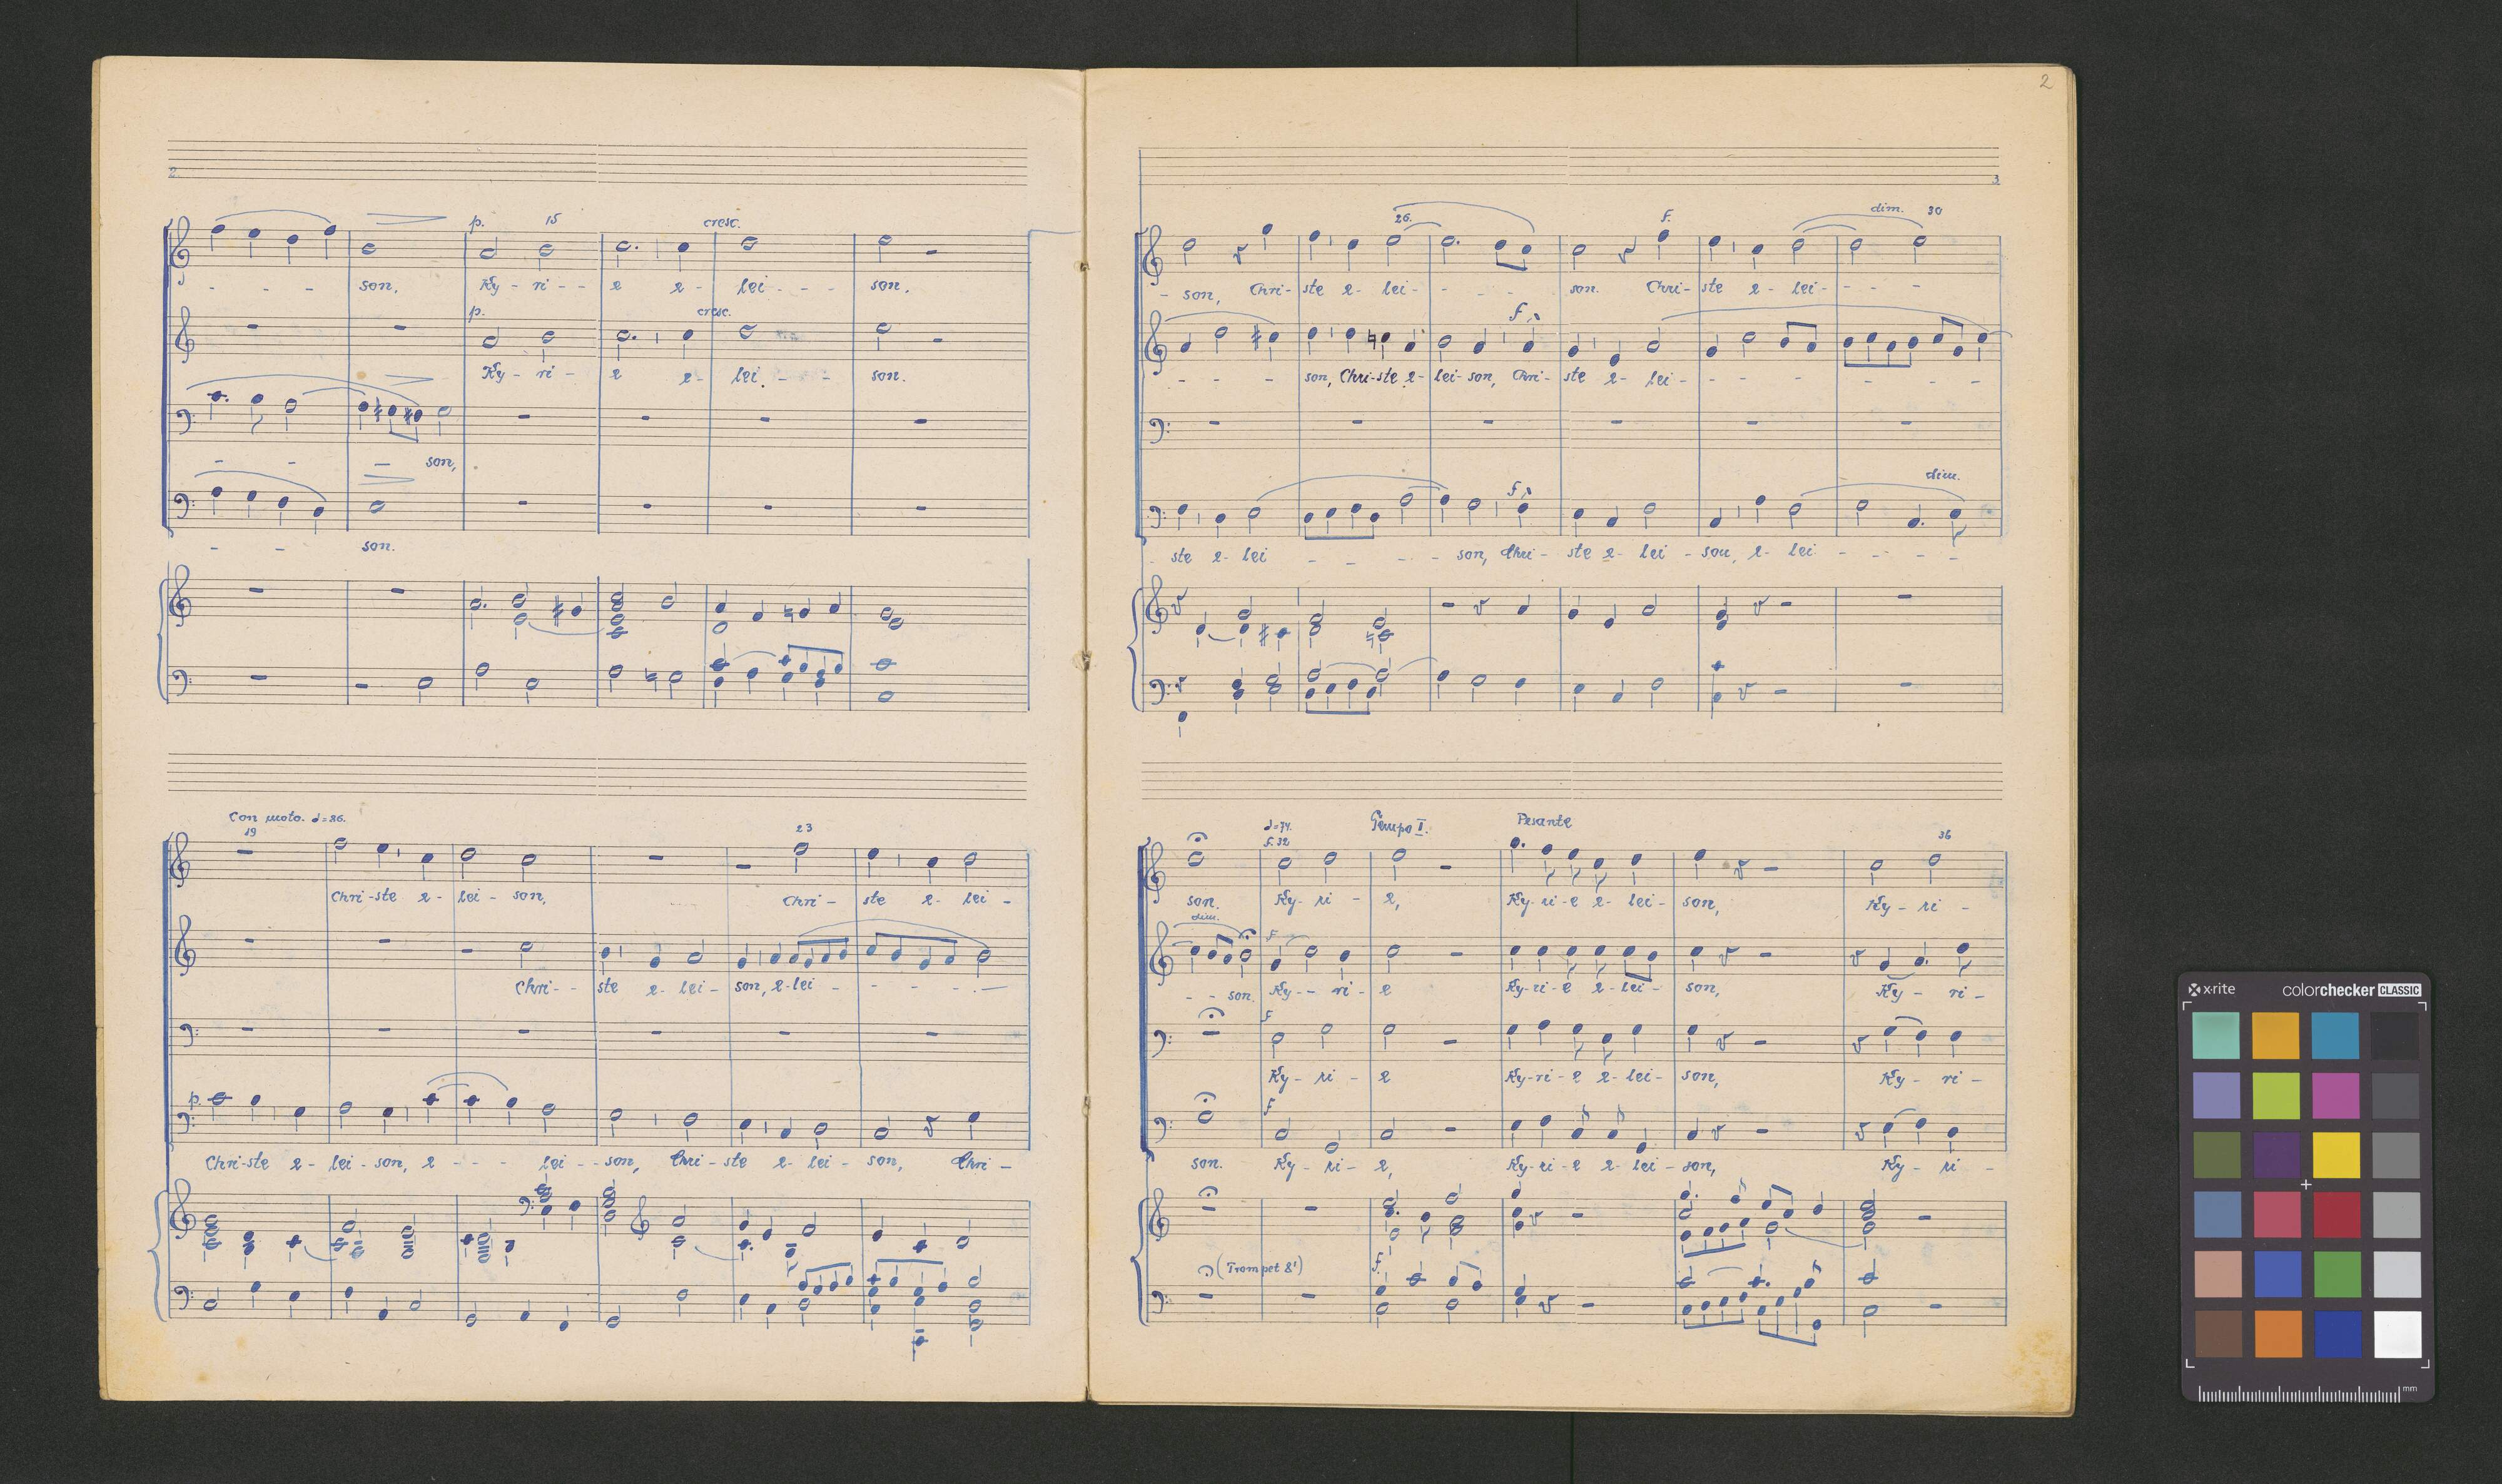 2
p. 15 cresc.
- - - son, Ky - ri - - e e - lei - - - son.
p. cresc.
Ky - ri - e e - lei. - - son.
- - - son,
- - son.
Con moto. 𝅗𝅥=86.
19 23
Chri-ste e- lei - son, Chri - ste e- lei -
Chri - - ste e- lei - son, e-lei - - - - -
p.
Chri-ste e- lei- son, e - - - lei - - son, Chri - ste e- lei - son, Chri -
2
3
26. f. dim. 30
- son, Chri- ste e- lei- - - - son. Chri- ste e- lei- - - -
f
- - - son, Chri-ste e- lei- son, Chri- ste e- lei - - - - - - -
f dim.
ste e- lei - - - - - son, Chri - ste e- lei - son, e- lei - - - -
𝅗𝅥=74. Tempo I. Pesante
f. 32 36
son. Ky- ri - e, Ky-ri-e e- lei- son, Ky - ri -
dim. f
- - son. Ky- - ri- e Ky-ri-e e-lei- son, Ky - ri -
f
Ky- ri - e Ky-ri- e e- lei- son, Ky - ri -
f
son. Ky- ri- e, Ky-ri-e e- lei- son, Ky - ri -
f.
(Trompet 8')
x-rite colorchecker CLASSIC
mm